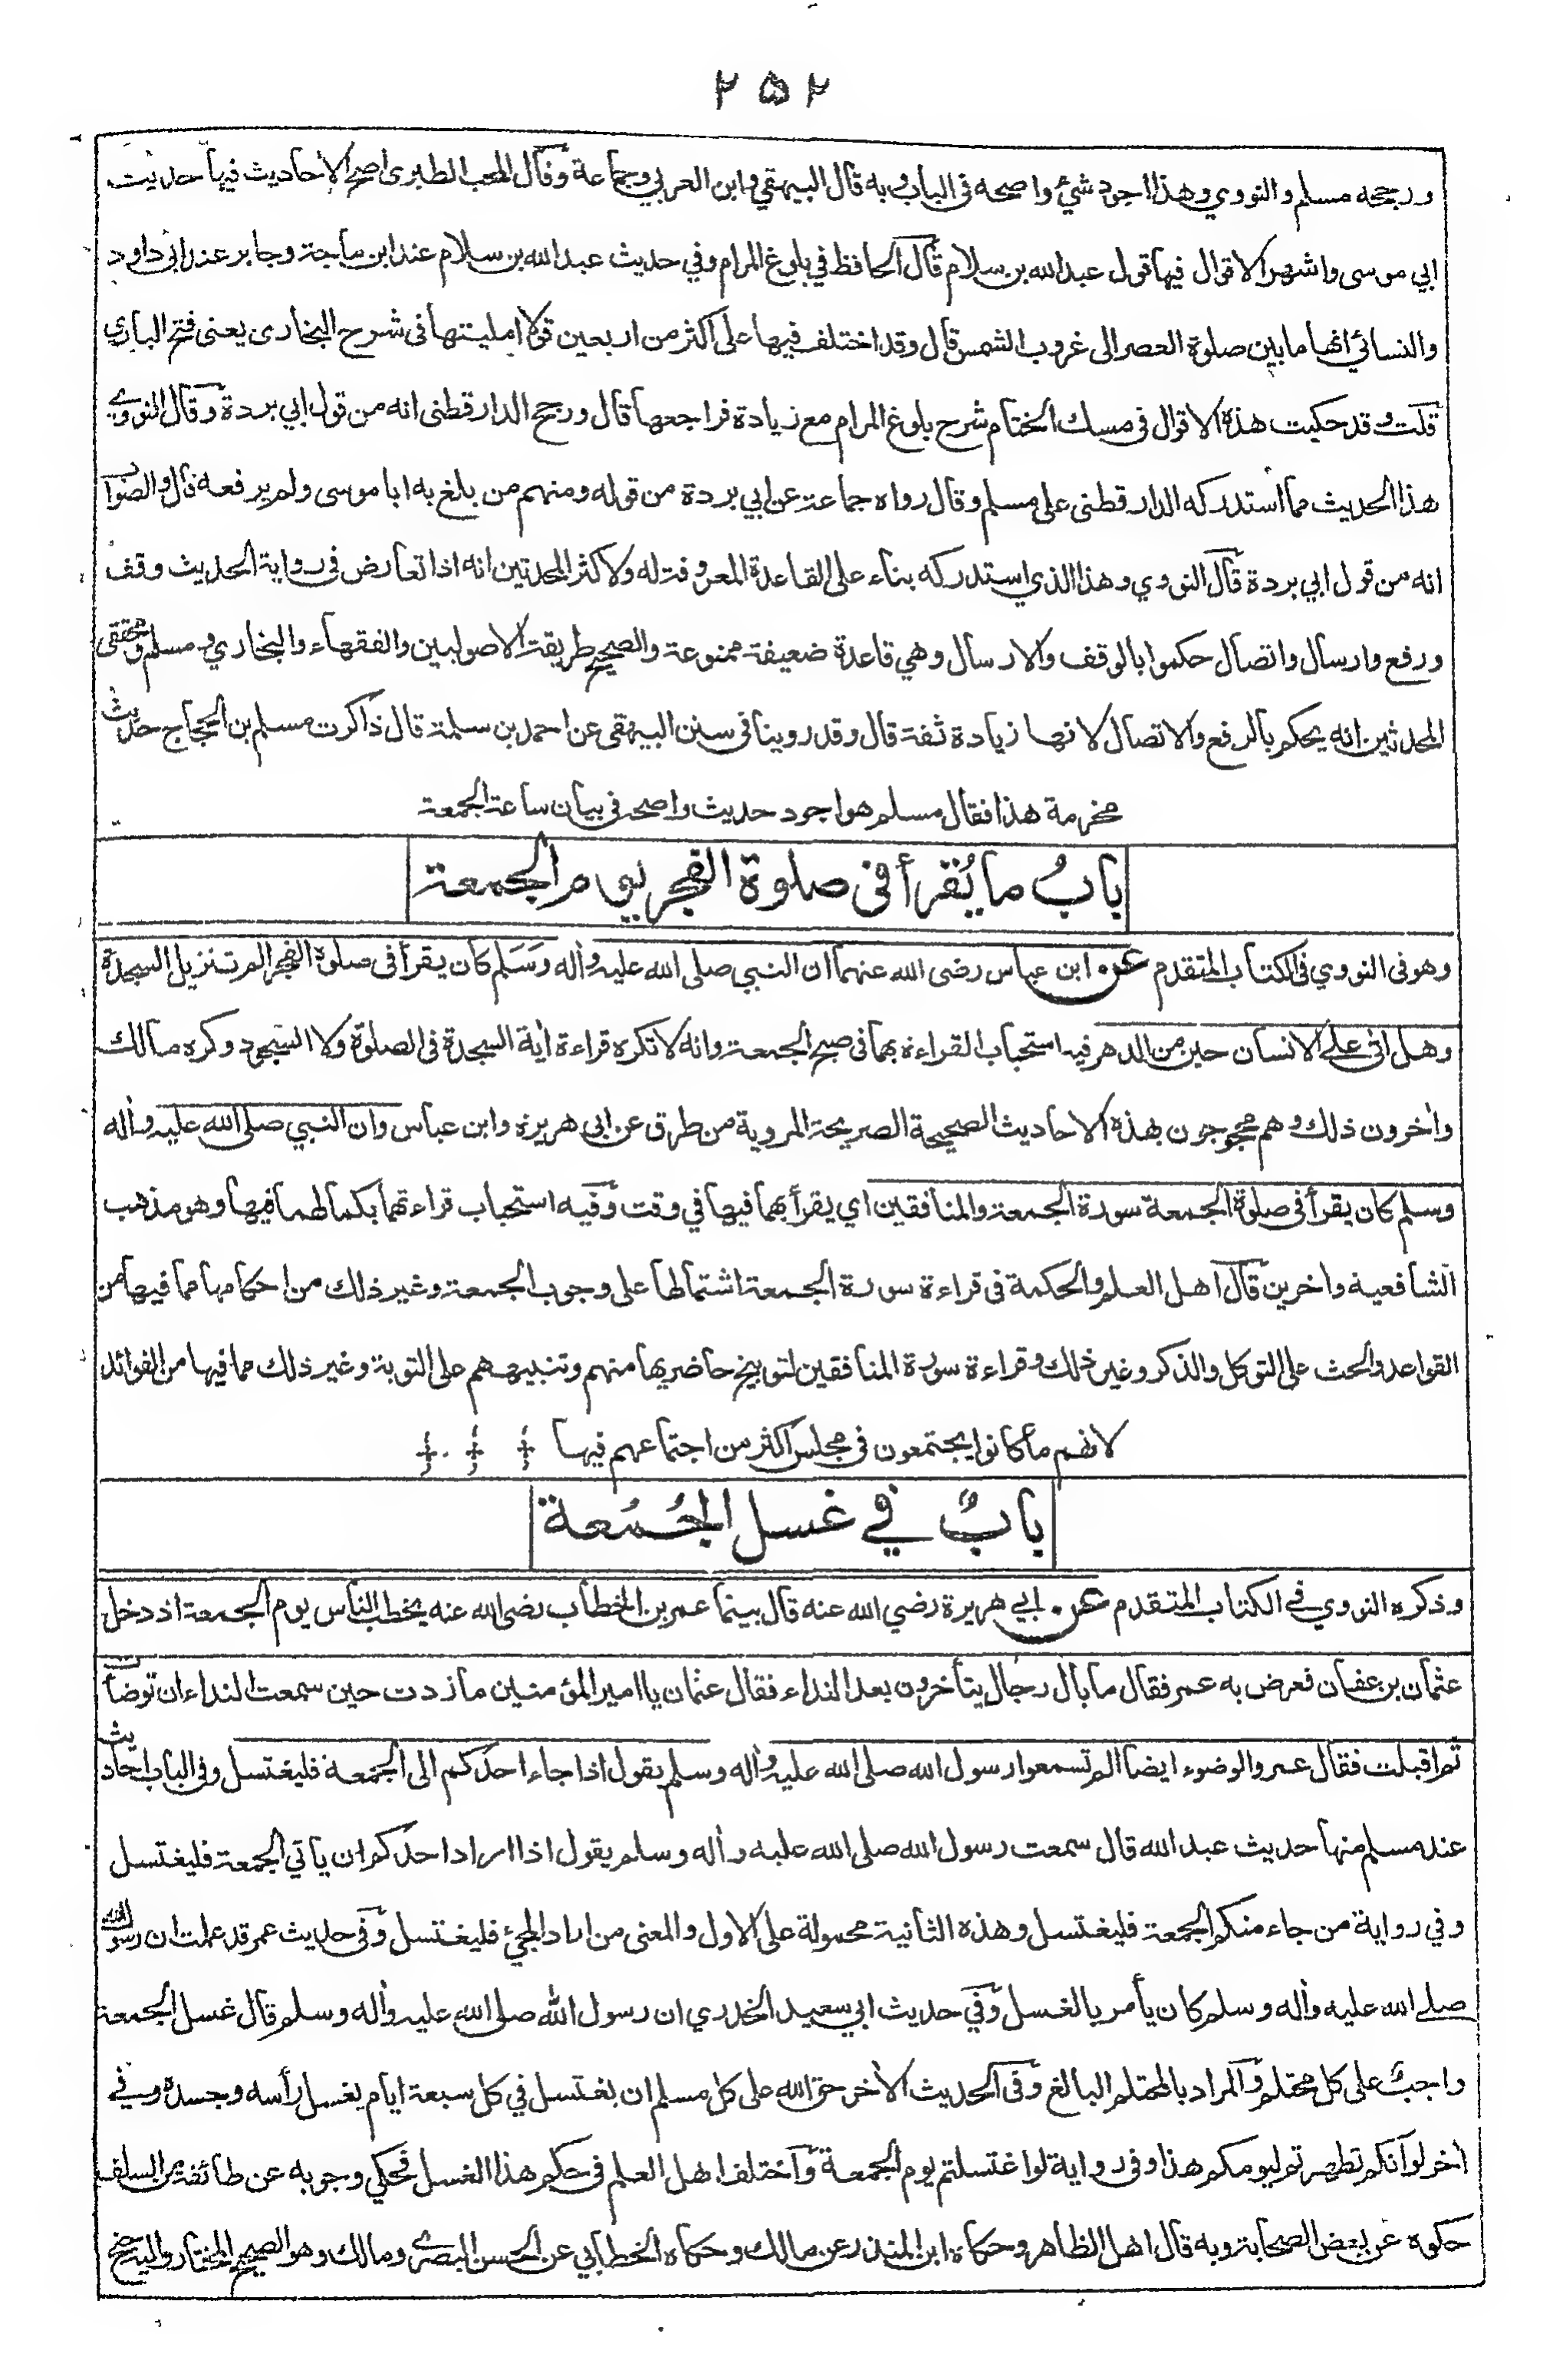 ٢٥٢
ورجحه مسلم والنووي وهذا اجود شيء واصحه فى الباب وبه قال البيهقي وابن العربي وجماعة وقال المحب الطبرى اصح الاحاديث فيها حديث
ابي موسى واشهر الاقوال فيها قول عبد الله بن سلام قال الحافظ في بلوغ المرام وفي حديث عبد الله بن سلام عند ابن ماجة وجابر عند ابى داود
والنسائي انها ما بين صلوة العصر الى غروب الشمس قال وقد اختلف فيها على اكثر من اربعين قولا امليتها فى شرح البخارى يعنى فتح الباري
قلت وقد حكيت هذه الاقوال فى مسك الختام شرح بلوغ المرام مع زيادة فراجعها قال ورجح الدارقطنى انه من قول ابي بردة وقال النووي
هذا الحديث مما استدركه الدارقطنى على مسلم وقال رواه جماعة عن ابي بردة من قوله ومنهم من بلغ به ابا موسى ولم يرفعه قال والصواب
انه من قول ابي بردة قال النووي وهذا الذي استدركه بناء على القاعدة المعروفة له ولاكثر المحدثين انه اذا تعارض فى رواية الحديث وقف
ورفع وارسال واتصال حكموا بالوقف والارسال وهي قاعدة ضعيفة ممنوعة والصحيح طريقة الاصوليين والفقهاء والبخاري ومسلم ومحققى
المحدثين انه يحكم بالرفع والاتصال لانها زيادة ثقة قال وقد روينا فى سنن البيهقى عن احمد بن سلمة قال ذاكرت مسلم بن الحجاج حديث
مخرمة هذا فقال مسلم هو اجود حديث واصحه فى بيان ساعة الجمعة
بابُ ما يُقرأ فى صلوة الفجر يوم الجمعة
وهو فى النووي فى الكتاب المتقدم عن ابن عباس رضى الله عنهما ان النبي صلى الله عليه وأله وسَلم كان يقرأ فى صلوة الفجر الم تنزيل السجدة
وهل اتى على الانسان حين من الدهر فيه استحباب القراءة بهما فى صبح الجمعة وانه لا تكره قراءة أية السجدة فى الصلوة ولا السجود وكره مالك
وأخرون ذلك وهم محجوجون بهذه الاحاديث الصحيحة الصريحة المروية من طرق عن ابى هريرة وابن عباس وان النبي صلى الله عليه وأله
وسلم كان يقرأ فى صلوة الجمعة سورة الجمعة والمنافقين اي يقرأ بهما فيها في وقت وفيه استحباب قراءتهما بكمالهما فيها وهو مذهب
الشافعية واخرين قال اهل العلم والحكمة فى قراءة سورة الجمعة اشتمالها على وجوب الجمعة وغير ذلك من احكامها مما فيها من
القواعد والحث على التوكل والذكر وغير ذلك وقراءة سورة المنافقين لتوبيخ حاضريها منهم وتنبيههم على التوبة وغير ذلك مما فيها من الفوائد
لانهم ما كانوا يجتمعون فى مجلس اكثر من اجتماعهم فيها
بابٌ في غسل الجُمُعة
وذكره النووي في الكتاب المتقدم عن ابي هريرة رضي الله عنه قال بينما عمر بن الخطاب رضى الله عنه يخطب الناس يوم الجمعة اذ دخل
عثمان بن عفان فعرض به عمر فقال ما بال رجال يتأخرون بعد النداء فقال عثمان يا امير المؤمنين ما زدت حين سمعت النداء ان توضأت
ثم اقبلت فقال عمر والوضوء ايضا الم تسمعوا رسول الله صلى الله عليه وأله وسلم يقول اذا جاء احدكم الى الجمعة فليغتسل وفى الباب احاديث
عند مسلم منها حديث عبد الله قال سمعت رسول الله صلى الله عليه وأله وسلم يقول اذا اراد احدكم ان يأتي الجمعة فليغتسل
وفي رواية من جاء منكم الجمعة فليغتسل وهذه الثانية محمولة على الاول والمعنى من اراد المجيء فليغتسل وفى حديث عمر قد علمت ان رسول الله
صلى الله عليه وأله وسلم كان يأمر بالغسل وفي حديث ابي سعيد الخدري ان رسول الله صلى الله عليه وأله وسلم قال غسل الجمعة
واجب على كل محتلم والمراد بالمحتلم البالغ وفى الحديث الأخر حق الله على كل مسلم ان يغتسل في كل سبعة ايام يغسل رأسه وجسده وفي
أخر لو انكم تطهرتم ليومكم هذا وفى رواية لو اغتسلتم يوم الجمعة واختلف اهل العلم فى حكم هذا الغسل فحكي وجوبه عن طائفة من السلف
حكوه عن بعض الصحابة وبه قال اهل الظاهر وحكاه ابن المنذر عن مالك وحكاه الخطابي عن الحسن البصري ومالك وهو الصحيح المختار واليه